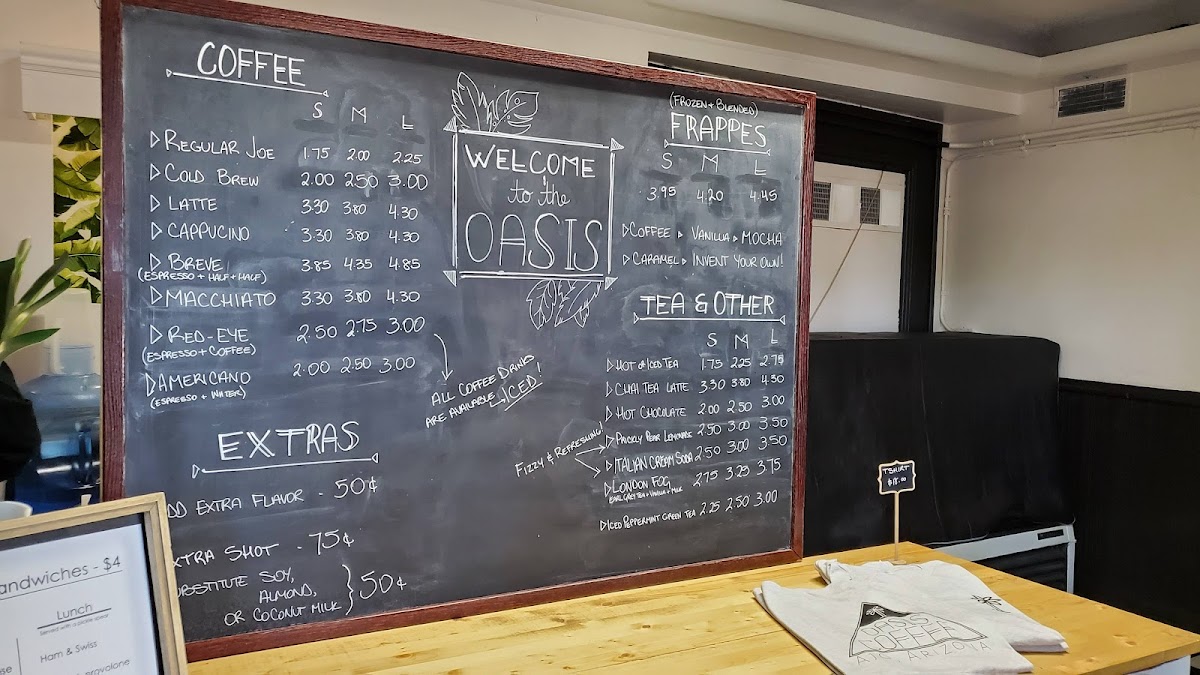 COFFEE
S M L
REGULAR JOE 1.75 2.00 2.25
COLD BREW 2.00 2.50 3.00
LATTE 3.30 3.80 4.30
CAPPUCINO 3.30 3.80 4.30
BREVE 3.85 4.35 4.85
(ESPRESSO + HALF + HALF)
MACCHIATO 3.30 3.80 4.30
RED-EYE 2.50 2.75 3.00
(ESPRESSO + COFFEE)
AMERICANO 2.00 2.50 3.00
(ESPRESSO + WATER)
ALL COFFEE DRINKS
ARE AVAILABLE ICED!
EXTRAS
DD EXTRA FLAVOR - 50¢
XTRA SHOT - 75¢
UBSTITUTE SOY,
ALMOND,
OR COCONUT MILK } 50¢
WELCOME
to the
OASIS
(FROZEN + BLENDED)
FRAPPES
S M L
3.95 4.20 4.45
COFFEE VANILLA MOCHA
CARAMEL INVENT YOUR OWN!
TEA & OTHER
S M L
HOT or ICED TEA 1.75 2.25 2.75
CHAI TEA LATTE 3.30 3.80 4.30
HOT CHOCOLATE 2.00 2.50 3.00
FIZZY & REFRESHING!
PRICKLY PEAR LEMONADE 2.50 3.00 3.50
ITALIAN CREAM SODA 2.50 3.00 3.50
LONDON FOG 2.75 3.25 3.75
EARL GREY TEA + VANILLA + MILK
ICED PEPPERMINT GREEN TEA 2.25 2.50 3.00
andwiches - $4
Lunch
Served with a pickle spear
Ham & Swiss
provolone
TSHIRT
$18.00
OASIS
COFFEE
AJO, ARIZONA